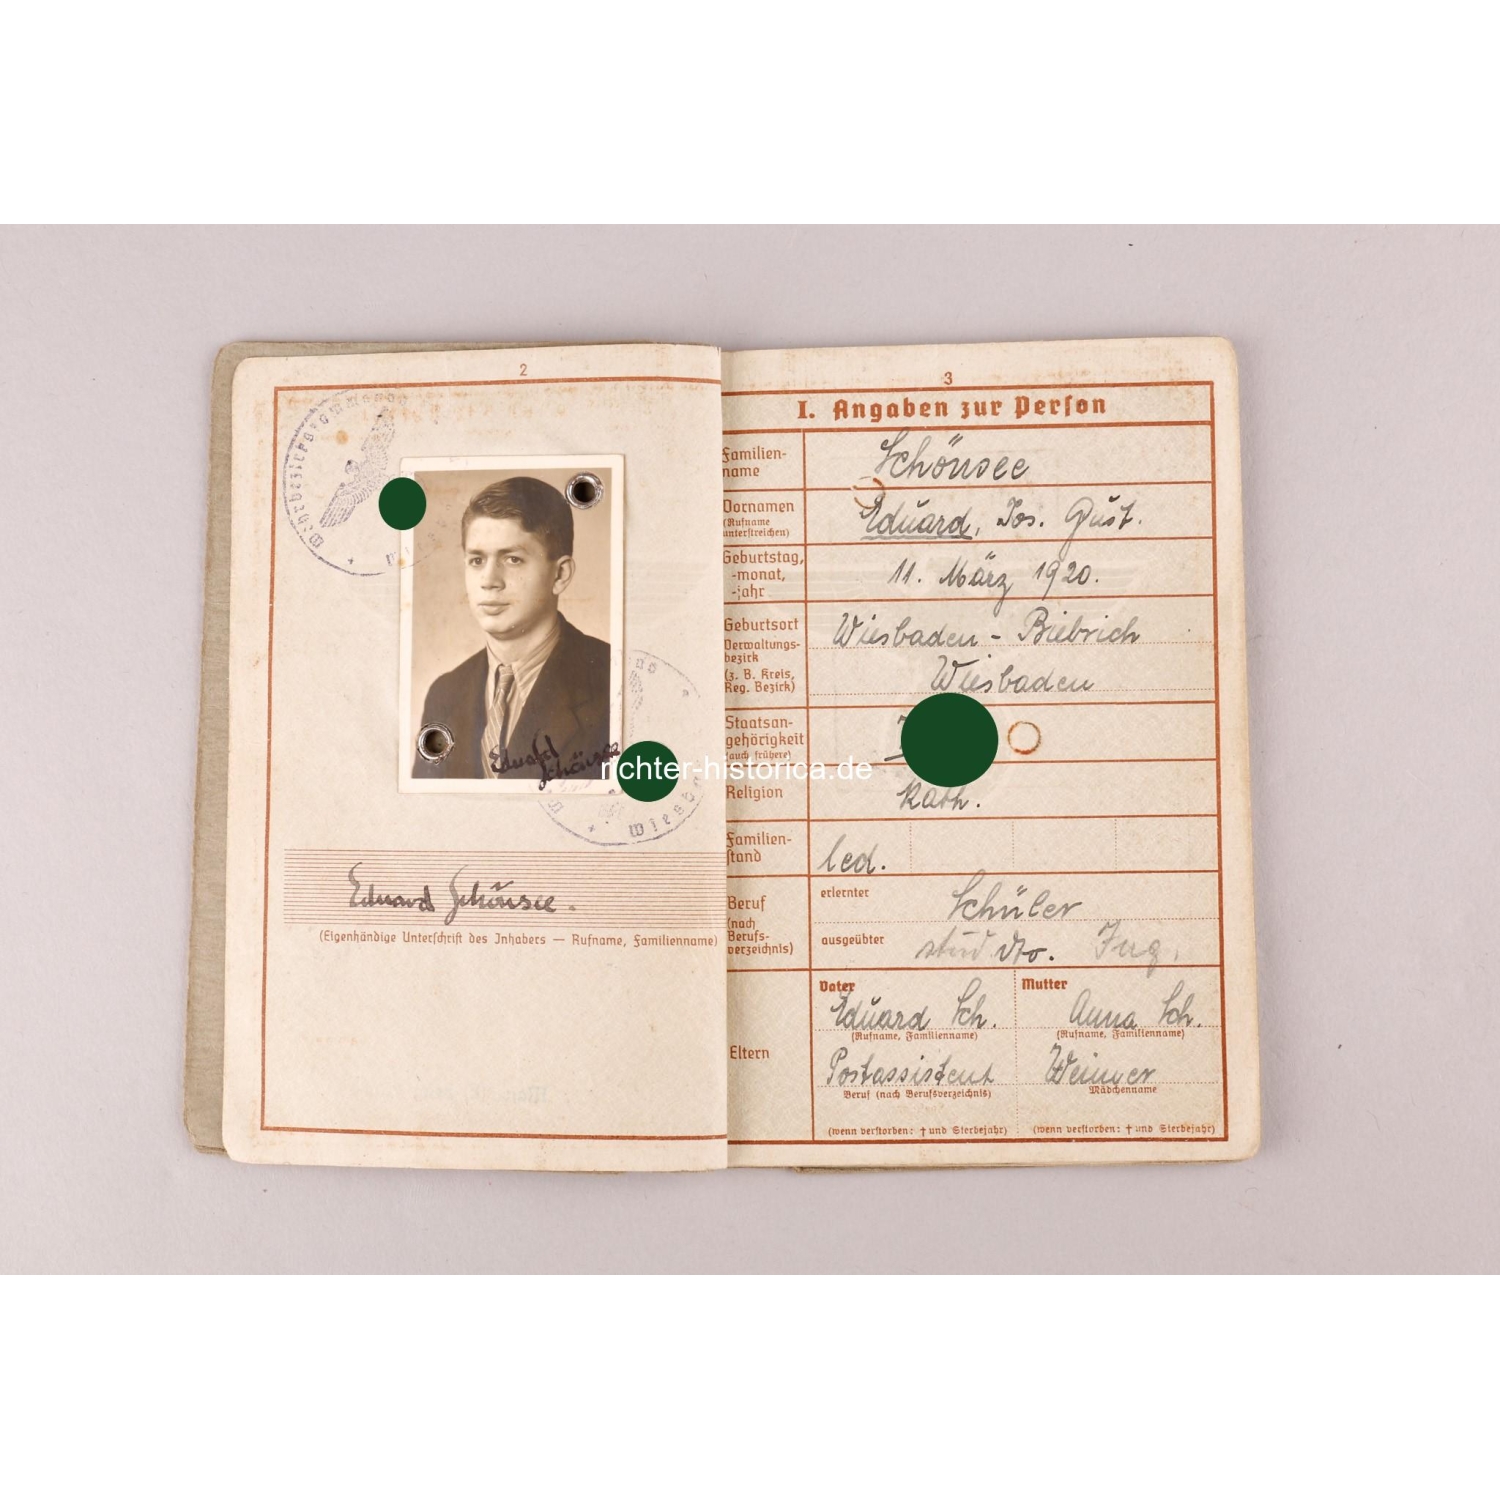 2
Wehrbezirkskommando
Eduard
Schönsee
richter-historica.de
Eduard Schönsee.
(Eigenhändige Unterschrift des Inhabers — Rufname, Familienname)
3
I. Angaben zur Person
Familien-
name
Schönsee
Vornamen
(Rufname
unterstreichen)
Eduard, Jos. Gust.
Geburtstag,
-monat,
-jahr
11. März 1920.
Geburtsort
Wiesbaden - Biebrich
Verwaltungs-
bezirk
(z. B. Kreis,
Reg. Bezirk)
Wiesbaden
Staatsan-
gehörigkeit
(auch frühere)
Religion
kath.
Familien-
stand
led.
Beruf
(nach
Berufs-
verzeichnis)
erlernter
Schüler
ausgeübter
stud. Ing.
Eltern
Vater
Eduard Sch.
(Rufname, Familienname)
Postassistent
Beruf (nach Berufsverzeichnis)
(wenn verstorben: † und Sterbejahr)
Mutter
Anna Sch.
(Rufname, Familienname)
Mädchenname
(wenn verstorben: † und Sterbejahr)